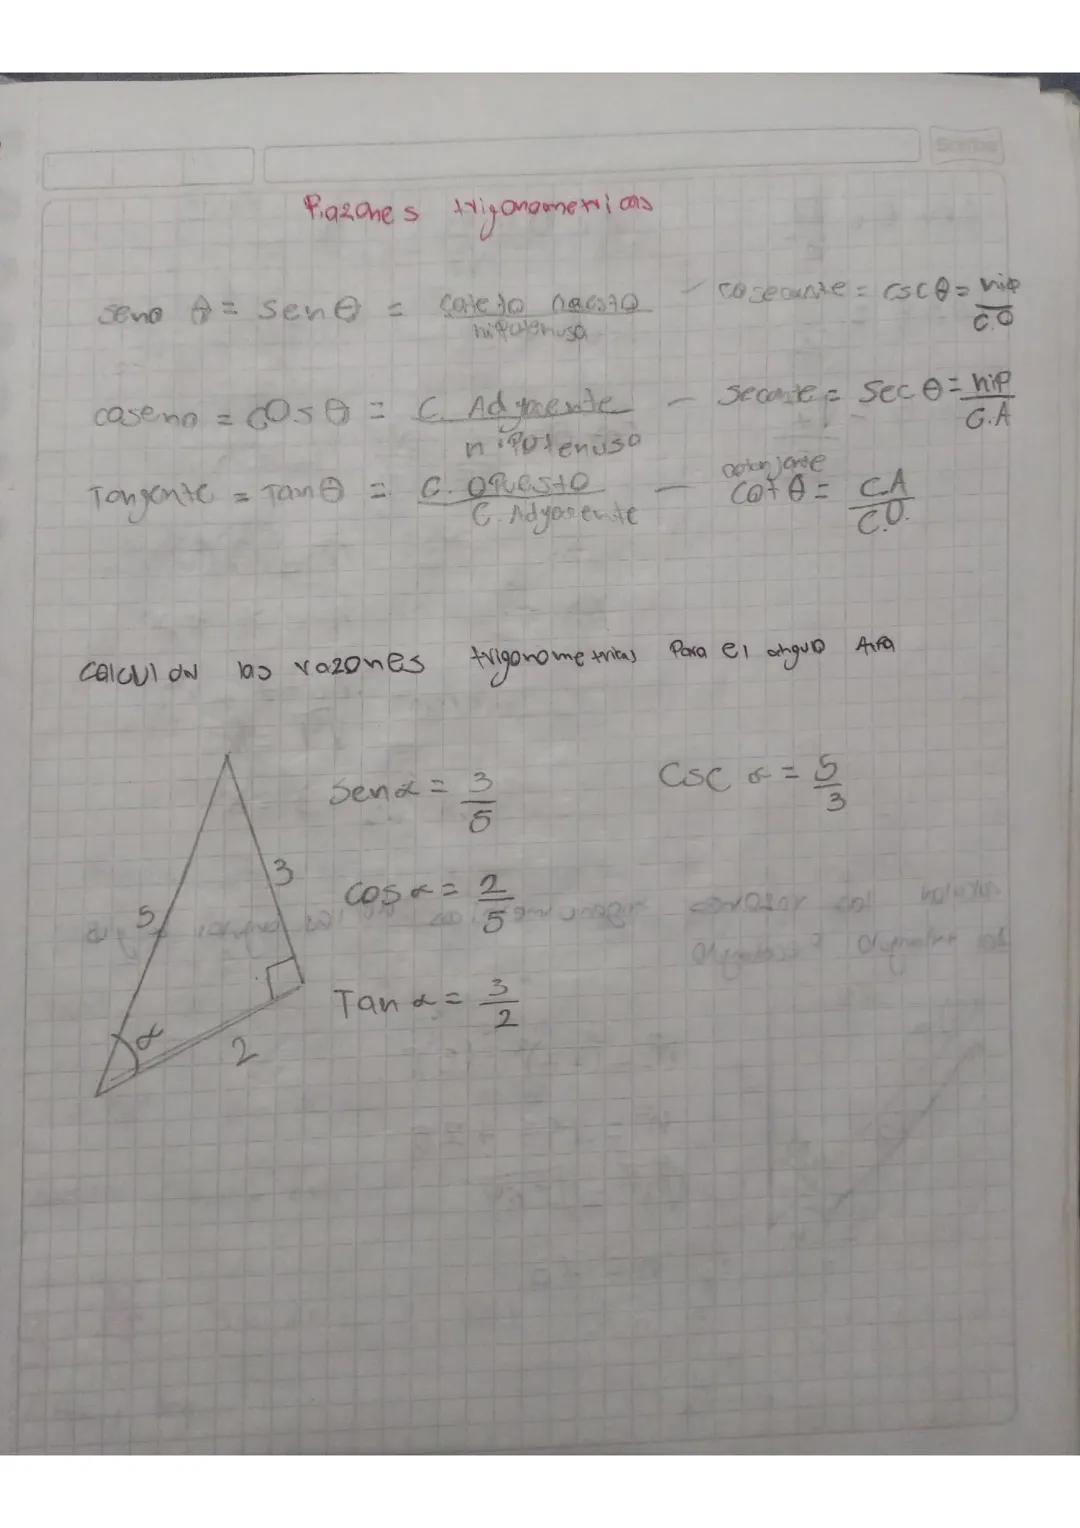 Scribe
Razones trigonometricas
seno θ = Sen θ = cateto opuesto / hipotenusa - cosecante = csc θ = hip / C.O
coseno = cos θ = C. Adyacente / hipotenusa - Secante = Sec θ = hip / C.A
Tangente = Tan θ = C. opuesto / C. Adyacente - cotanjente cot θ = C.A / C.O.
calculan las razones trigonometricas Para el angulo Alfa
Sen α = 3/5 Csc α = 5/3
3
Cos α = 2/5
5
Tan α = 3/2
α
2